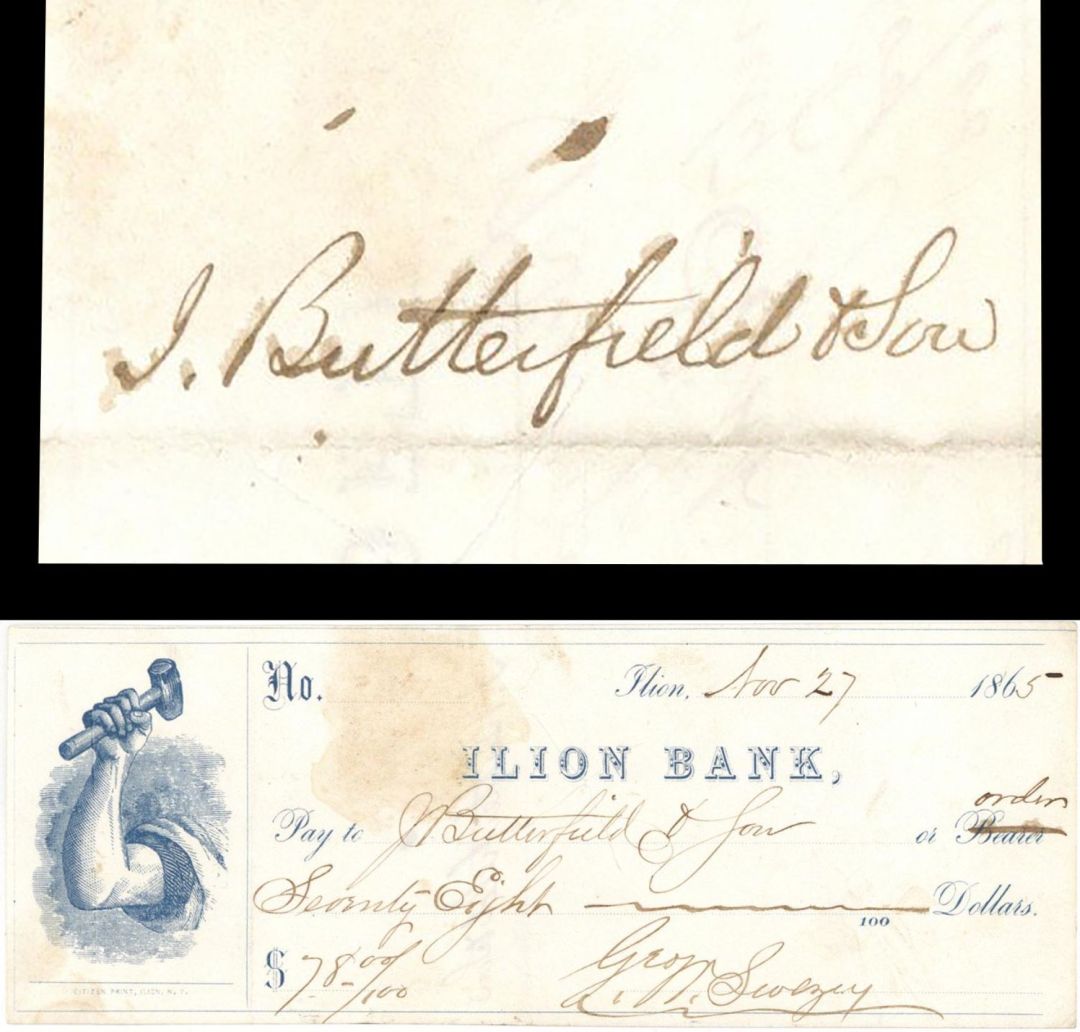 J. Butterfield & Son
No. Ilion, Nov 27 1865
ILION BANK,
order
Pay to J Butterfield & Son or Bearer
Seventy Eight Dollars.
100
$ 78 00/100
CITIZEN PRINT, ILION, N. Y.